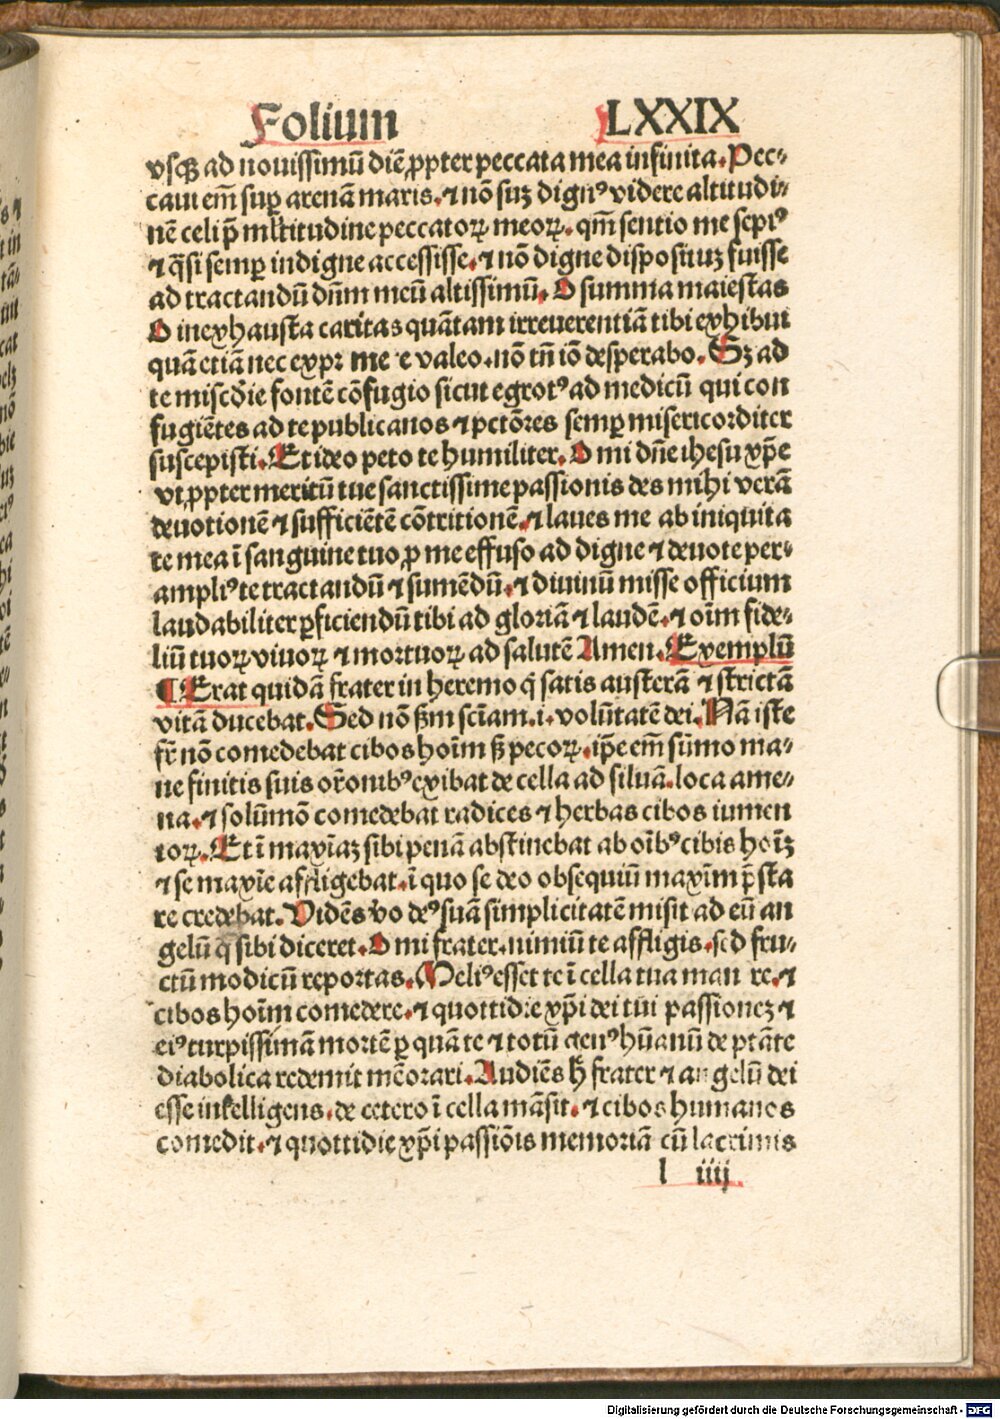 Folium LXXIX
vsqꝫ ad nouissimū diē ꝓpter peccata mea infinita. Pec⸗
caui em̄ suꝑ arenā maris. ⁊ nō suꝫ dignꝰ videre altitudi⸗
nē celi p̄ mĺtitudine peccatoꝝ meoꝝ. qm̄ sentio me sepiꝰ
⁊ q̄si semꝑ indigne accessisse. ⁊ nō digne disposituꝫ fuisse
ad tractandū dn̄m meū altissimū. O summa maiestas
O inexhausta caritas quātam irreuerentiā tibi exhibui
quā etiā nec expꝛ me e valeo. nō tn̄ iō desperabo. Sꝫ ad
te misc̄die fontē cōfugio sicut egrotꝰ ad medicū qui con
fugiētes ad te publicanos ⁊ pctōres semꝑ misericorditer
suscepisti. Et ideo peto te humiliter. O mi dn̄e ihesu xp̄e
vt ꝓpter meritū tue sanctissime passionis des mihi verā
deuotionē ⁊ sufficiētē cōtritionē. ⁊ laues me ab iniquita
te mea ī sanguine tuo ꝓ me effuso ad digne ⁊ deuote per⸗
ampliꝰ te tractandū ⁊ sumēdū. ⁊ diuinū misse officium
laudabiliter ꝑficiendū tibi ad gloriā ⁊ laudē. ⁊ oīm fide⸗
liū tuoꝝ viuoꝝ ⁊ mortuoꝝ ad salutē Amen. Exemplū
¶ Erat quidā frater in heremo q̇ satis austerā ⁊ strictā
vitā ducebat. Sed nō ẜm sciam̄. i. volūtatē dei. Nā iste
fr̄ nō comedebat cibos hoīm ß pecoꝝ. ip̄e em̄ sūmo ma⸗
ne finitis suis or̄onibꝰ exibat de cella ad siluā. loca ame⸗
na. ⁊ solūmō comedebat radices ⁊ herbas cibos iumen
toꝝ. Et ī maxīaꝫ sibi penā abstinebat ab oībꝰ cibis hoīꝫ
⁊ se maxīe affligebat. ī quo se deo obsequiū maxīm p̄sta
re credebat. Vidēs v̄o deꝰ suā simplicitatē misit ad eū an
gelū q̇ sibi diceret. O mi frater. nimiū te affligis. sed fru⸗
ctū modicū reportas. Meliꝰ esset te ī cella tua man re. ⁊
cibos hoīm comedere. ⁊ quottidie xp̄i dei tui passioneꝫ ⁊
eiꝰ turpissimā mortē ꝑ quā te ⁊ totū genꝰ hūanū de ptāte
diabolica redemit mēorari. Audiēs h̄ frater ⁊ angelū dei
esse intelligens. de cetero ī cella māsit. ⁊ cibos humanos
comedit. ⁊ quottidie xp̄i passiōis memoriā cū lacrimis
l iiij